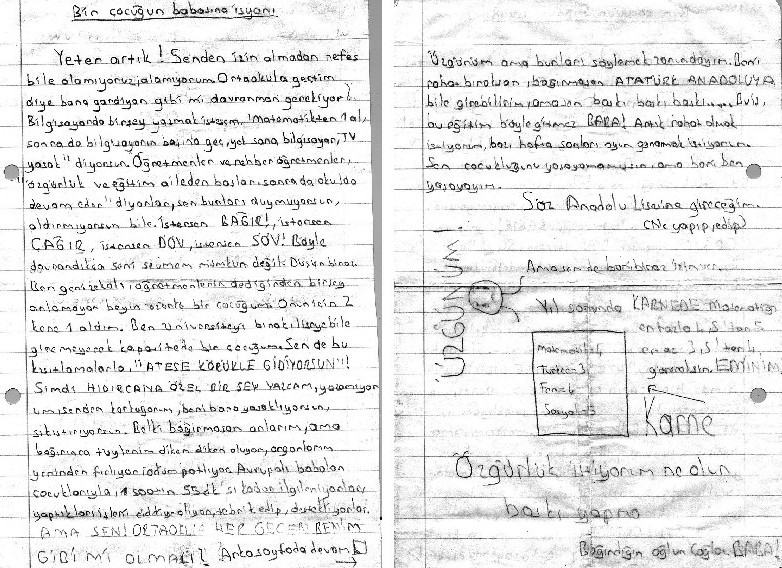 Bir çocuğun babasına isyanı
Yeter artık! Senden izin almadan nefes
bile alamıyoruz, alamıyorum. Ortaokula geçtim
diye bana gardiyan gibi mi davranman gerekiyor?
Bilgisayarda birşey yazmak istesem "Matematikten 1 al,
sonra da bilgisayarın başına geç, yat sana bilgisayar, TV
yasak" diyorsun. Öğretmenler ve rehber öğretmenler,
"özgürlük ve eğitim aileden başlar, sonra da okulda
devam eder" diyorlar, sen bunları duymuyorsun,
aldırmıyorsun bile. İstersen BAĞIR!, istersen
ÇAĞIR, istersen DÖV, istersen SÖV! Böyle
davrandıkça seni sevmem mümkün değil. Düşün biraz.
Ben geri zekalı, öğretmenlerin dediğinden birşey
anlamayan beyin özürlü bir çocuğum. Onun için 2
kere 1 aldım. Ben üniversiteyi bırak, liseye bile
giremeyecek kapasitede bir çocuğum. Sen de bu
kısıtlamalarla, "ATEŞE KÖRÜKLE GİDİYORSUN"!
Şimdi HIDIRCANA ÖZEL BİR ŞEY YAZCAM, yazamıyor
um, senden korkuyorum, beni bana yasaklıyorsun,
sıkıştırıyorsun. Belki bağırmasan anlarım, ama
bağırınca tüylerim diken diken oluyor, organlarım
yerinden fırlıyor, ödüm patlıyor. Avrupalı babalar
çocuklarıyla, 1 saatin 55 dk'sı kadar ilgileniyorlar,
yaptıkları işleri ciddiye alıyor, tebrik edip, destekliyorlar.
AMA SENİ ORTAOKUL HER GEÇEN BENİM
GİBİ Mİ OLMALI? Arka sayfada devam
Üzgünüm ama bunları söylemek zorundayım. Beni
rahat bıraksan, bağırmasan ATATÜRK ANADOLUYA
bile girebilirim, ama sen baskı, baskı, baskı.....
bu eğitim böyle gitmez BABA! Artık rahat olmak
istiyorum, bazı hafta sonları oyun oynamak istiyorum.
Sen çocukluğunu yaşayamamışsın, ama bari ben
yaşayayım.
Söz Anadolu Lisesine gireceğim.
(Ne yapıp, edip)
ÜZGÜNÜM!
Ama sen de bari biraz izin ver.
Yıl sonunda KARNEDE Matematiğin
en fazla 4,5'tan 5
en az 3,5'tan 4,
göreceksin EMİNİM
Matematik=4
Türkçe=3
Fen=4
Sosyal=3
Karne
Özgürlük istiyorum ne olur
baskı yapma
Bağırdığın oğlun Çağlar BABA!